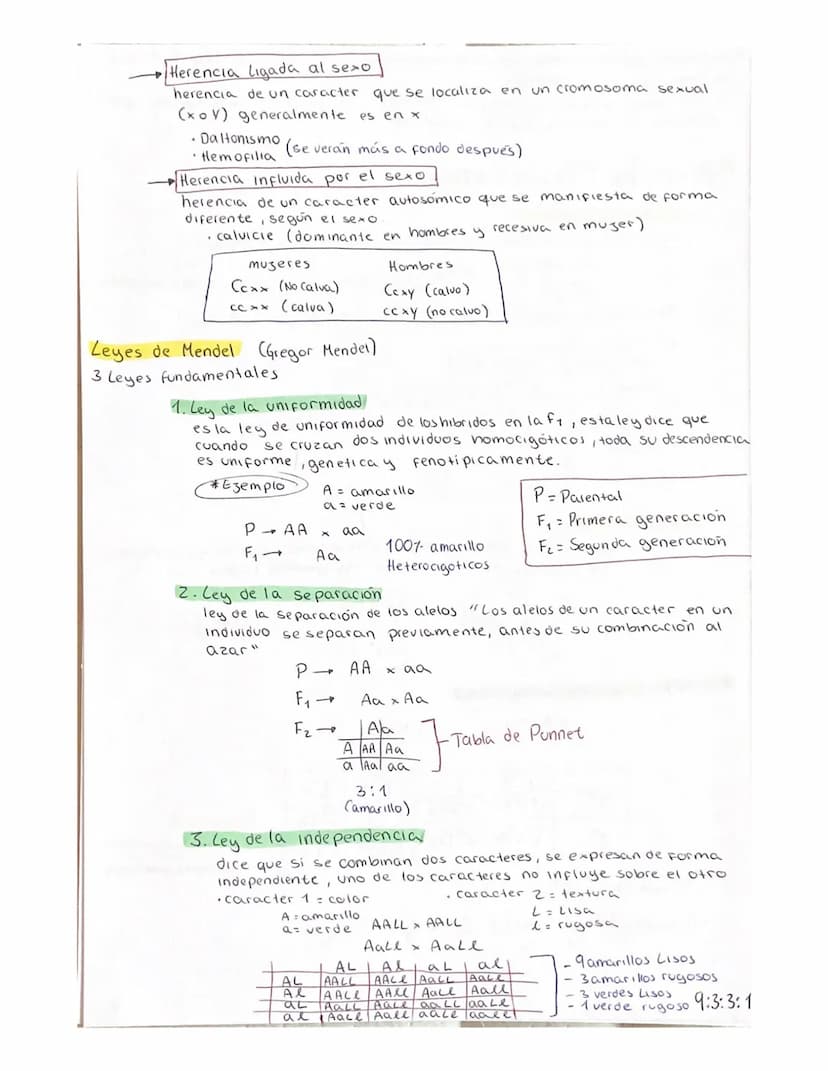 → Herencia ligada al sexo
herencia de un caracter que se localiza en un cromosoma sexual
(x o y) generalmente es en x
· Daltonismo
· Hemofilia (se verán más a fondo después)
→ Herencia influida por el sexo
herencia de un caracter autosómico que se manifiesta de forma
diferente, según el sexo
· calvicie (dominante en hombres y recesiva en mujer)
mujeres Hombres
Ccxx (No calva) Ccxy (calvo)
ccxx (calva) ccxy (no calvo)
Leyes de Mendel (Gregor Mendel)
3 Leyes fundamentales
1. Ley de la uniformidad
es la ley de uniformidad de los hibridos en la f1, esta ley dice que
cuando se cruzan dos individuos homocigóticos, toda su descendencia
es uniforme, genetica y fenotipicamente.
*Ejemplo
A = amarillo
a = verde
P → AA x aa
F1 → Aa
100% amarillo
Heterocigoticos
P = Parental
F1 = Primera generación
F2 = Segunda generación
2. Ley de la separación
ley de la separación de los alelos "Los alelos de un caracter en un
individuo se separan previamente, antes de su combinación al
azar"
P → AA x aa
F1 → Aa x Aa
F2 → A a
A AA Aa
a Aa aa
Tabla de Punnet
3:1
(amarillo)
3. Ley de la independencia
dice que si se combinan dos caracteres, se expresan de forma
independiente, uno de los caracteres no influye sobre el otro
· caracter 1 = color · caracter 2 = textura
A = amarillo L = Lisa
a = verde l = rugosa
AALL x AALL
AaLl x AaLl
AL Al aL al
AL AALL AALl AaLL AaLl
Al AALl AAll AaLl Aall
aL AaLL AaLl aaLL aaLl
al AaLl Aall aaLl aall
- 9 amarillos Lisos
- 3 amarillos rugosos
- 3 verdes Lisos
- 1 verde rugoso 9:3:3:1